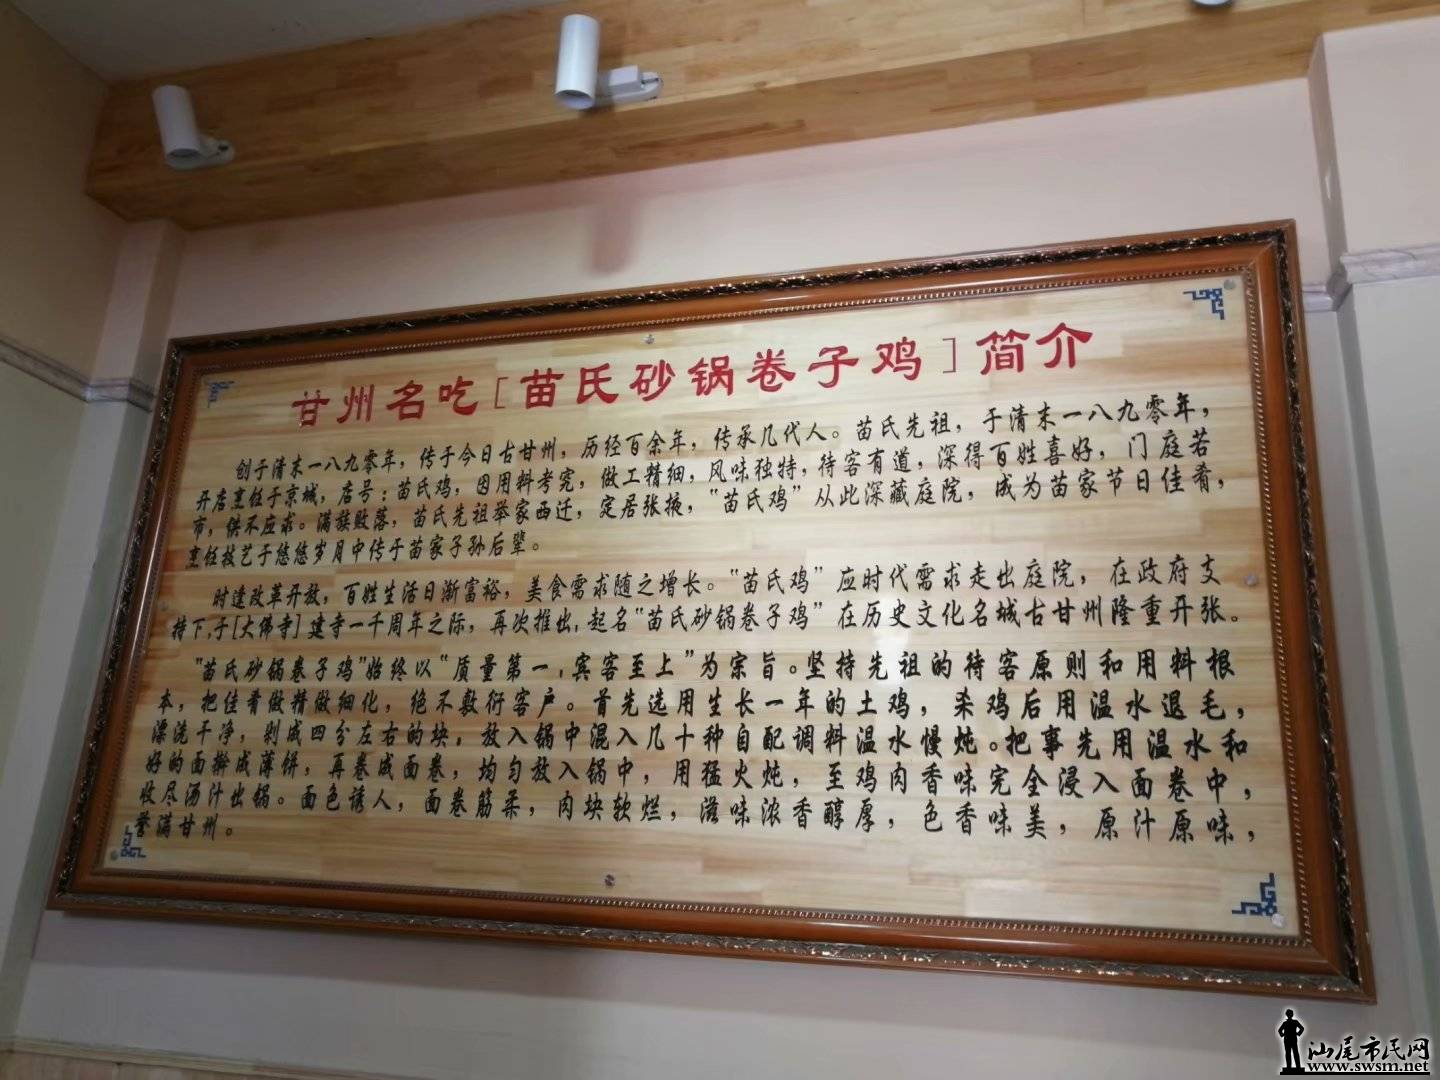 甘州名吃[苗氏砂锅卷子鸡]简介
创于清末一八九零年，传于今日古甘州，历经百余年，传承几代人。苗氏先祖，于清末一八九零年，
开店烹饪于京城，店号：苗氏鸡，因用料考究，做工精细，风味独特，待客有道，深得百姓喜好，门庭若
市，供不应求。满族败落，苗氏先祖举家西迁，定居张掖，“苗氏鸡”从此深藏庭院，成为苗家节日佳肴，
烹饪技艺于悠悠岁月中传于苗家子孙后辈。
时逢改革开放，百姓生活日渐富裕，美食需求随之增长。“苗氏鸡”应时代需求走出庭院，在政府支
持下,于[大佛寺]建寺一千周年之际，再次推出,起名“苗氏砂锅卷子鸡”在历史文化名城古甘州隆重开张。
“苗氏砂锅卷子鸡”始终以“质量第一，宾客至上”为宗旨。坚持先祖的待客原则和用料根
本，把佳肴做精做细化，绝不敷衍客户。首先选用生长一年的土鸡，杀鸡后用温水退毛，
漂洗干净，剁成四分左右的块，放入锅中混入几十种自配调料温水慢炖。把事先用温水和
好的面擀成薄饼，再卷成面卷，均匀放入锅中，用猛火炖，至鸡肉香味完全浸入面卷中，
收尽汤汁出锅。面色诱人，面卷筋柔，肉块软烂，滋味浓香醇厚，色香味美，原汁原味，
誉满甘州。
汕尾市民网
www.swsm.net